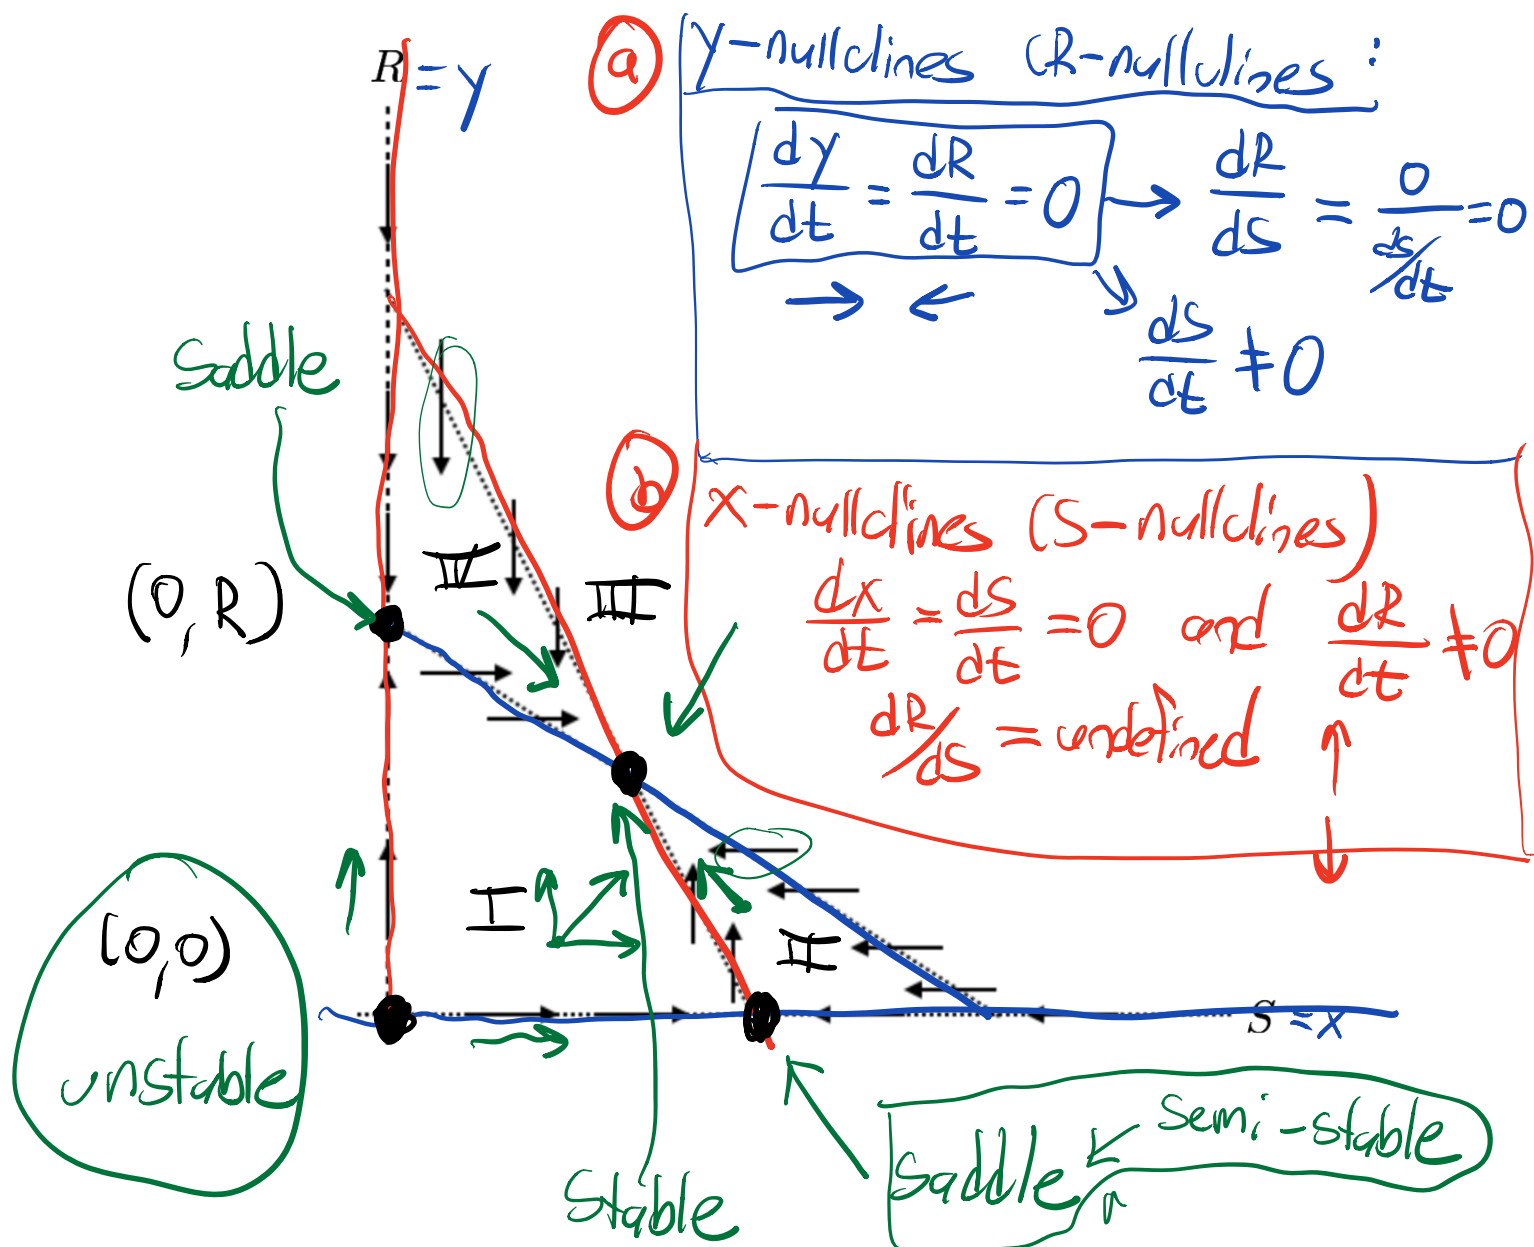 R = y
(a) y-nullclines (R-nullclines :
dy/dt = dR/dt = 0 → dR/dS = 0/(ds/dt) = 0
→ ←
dS/dt ≠ 0
Saddle
(b) X-nullclines (S-nullclines)
dx/dt = dS/dt = 0 and dR/dt ≠ 0
dR/dS = undefined
IV
III
(0, R)
I
II
(0,0)
unstable
S = x
Semi-stable
Saddle
Stable